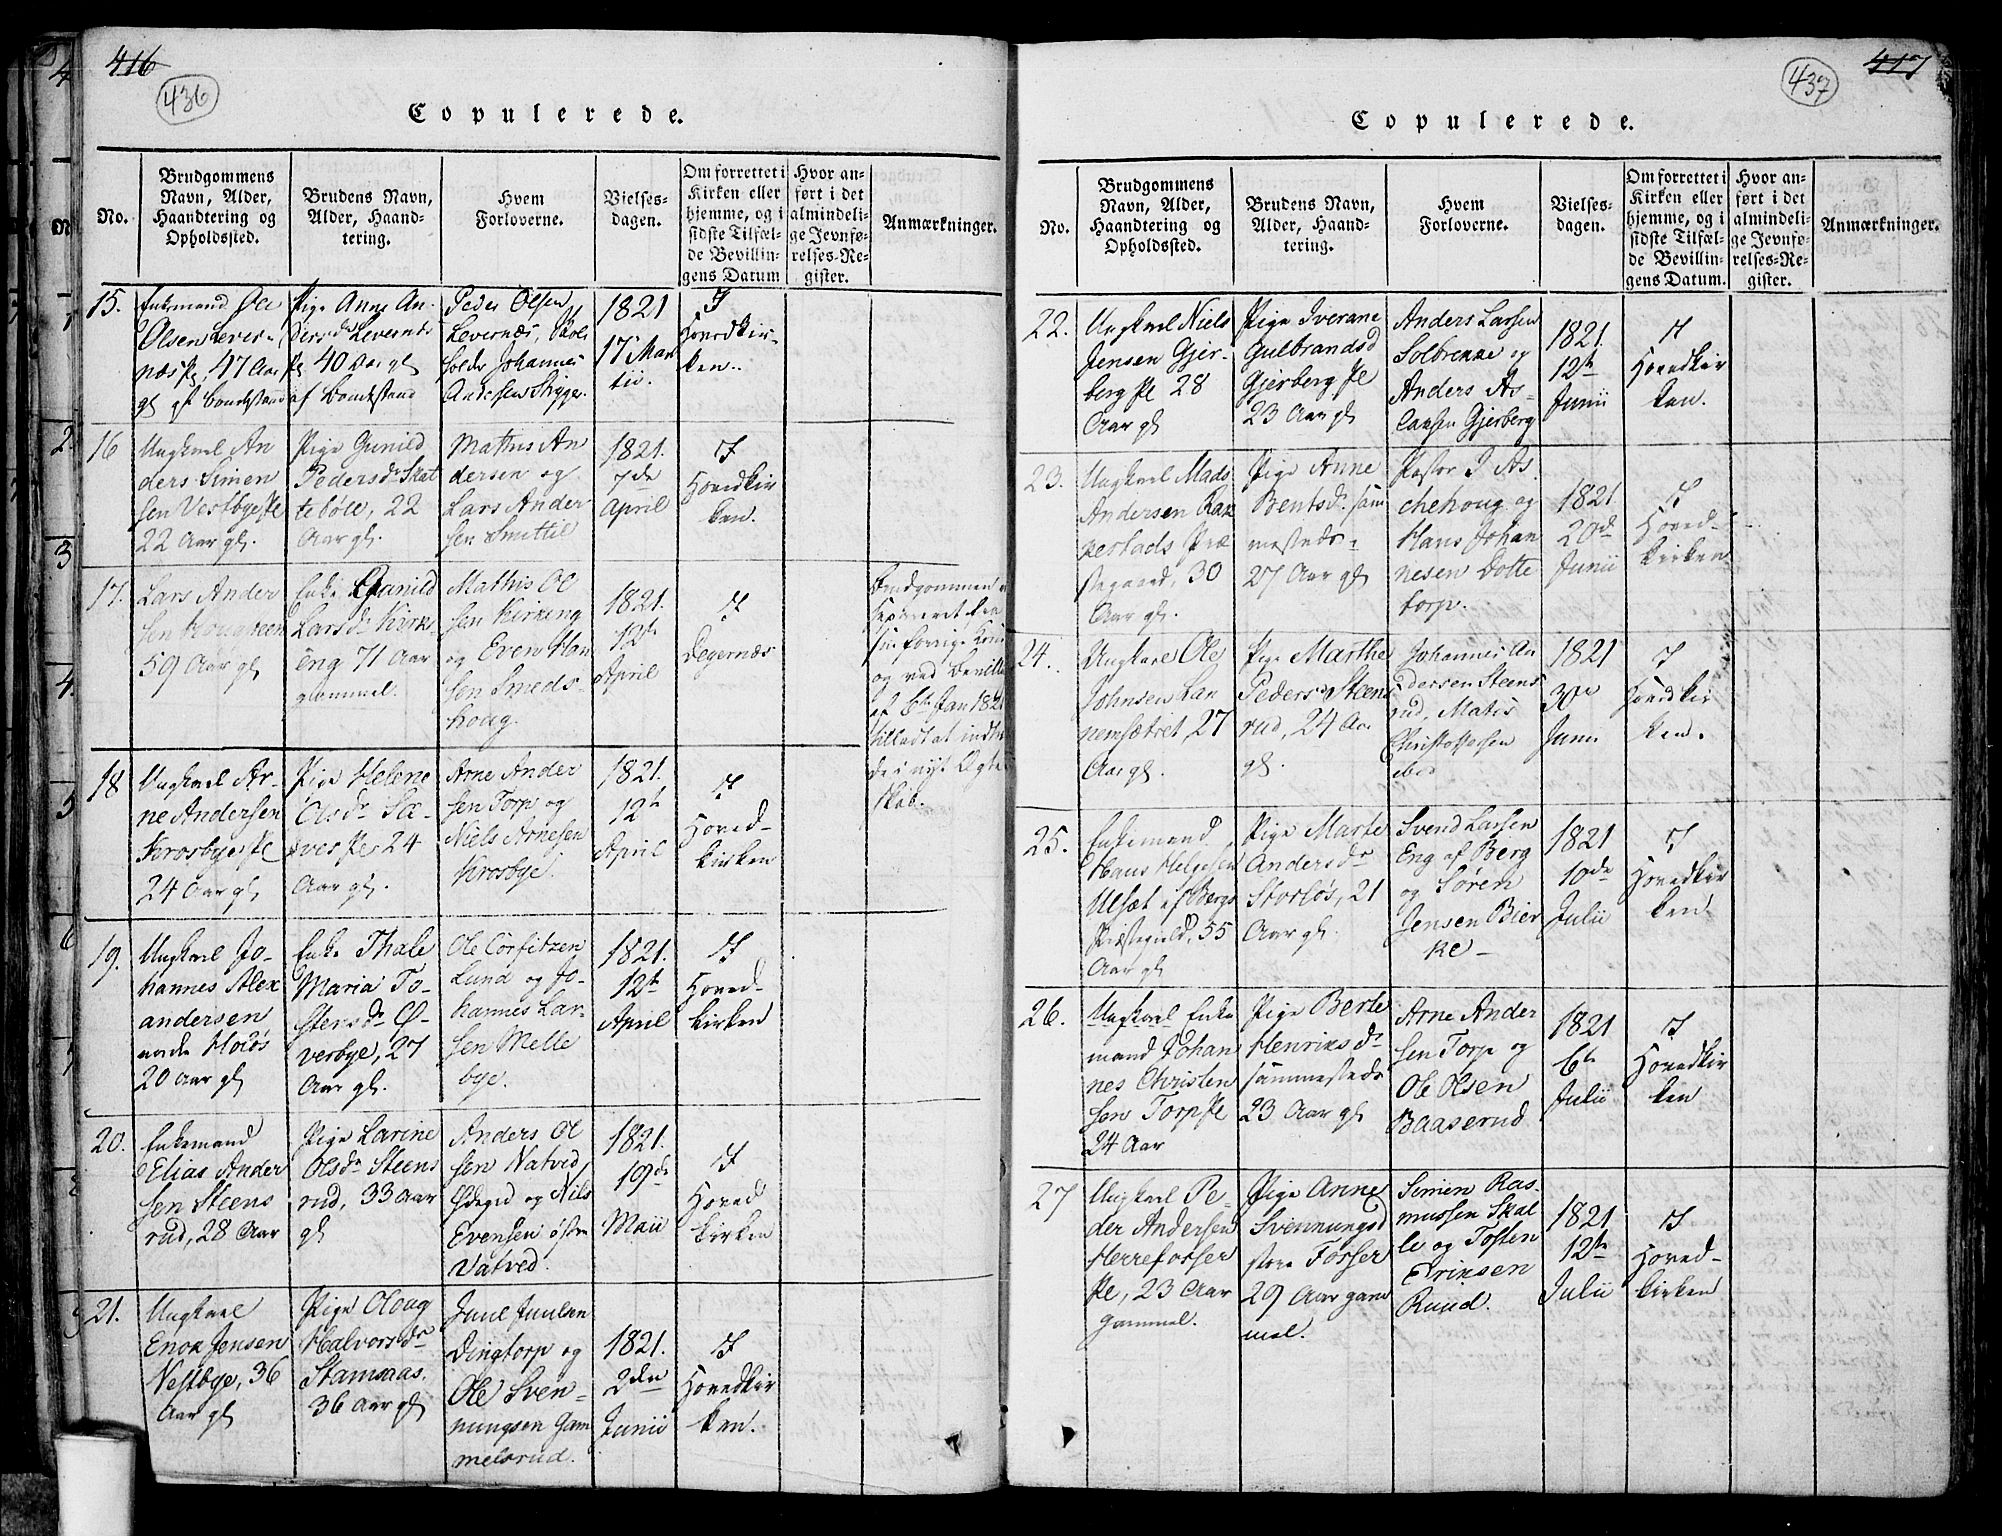 416
436
Copulerede.
No.
Brudgommens
Navn, Alder,
Haandtering og
Opholdssted.
Brudens Navn,
Alder, Haand-
tering.
Hvem
Forloverne.
Vielses-
dagen.
Om forrettet i
Kirken eller
hjemme, og i
sidste Tilfæl-
de Bevillin-
gens Datum
Hvor an-
ført i det
almindeli-
ge Jevnfø-
relses-Re-
gister.
Anmærkninger.
15.
Enkemand Ole
Olsen Lever-
næs Pl, 47 Aar
gl af Bondestand
Pige Anne An-
dersdr Levernæs
Pl 40 Aar gl
af Bondestand
Peder Olsen
Levernæs,
Johannes
Andersen
1821
17 Mar
tii.
I
Hovedkir-
ken.
16
Ungkarl An
ders Simen
sen Vestbye Pl
22 Aar gl.
Pige Gunild
Pedersdr Skat
tebøle, 22
Aar gl.
Mathis An
dersen og
Lars Ander
sen Smittil
1821.
7de
April
I
Hovedkir
ken.
17.
Lars Ander
sen
59 Aar gl
Enke Gunild
Larsdr Kirk-
eng 71 Aar
gammel.
Mathis Ol
sen Kirkeng
og Even Han
sen Smeds-
houg.
1821.
12te
April
I
Degernæs
Brudgommen
separeret fra
sin forrige Kone
og ved Bevilling
af 6te Jan 1821
tilladt at indtræ
de i nyt Ægte
skab.
18
Ungkarl Ar-
ne Andersen
Krosbye Pl
24 Aar gl
Pige Helene
Olsdr Sæ-
ves Pl 24
Aar gl.
Arne Ander
sen Torp og
Niels Arnesen
Krosbye.
1821.
12te
April
I
Hoved-
kirken
19.
Ungkarl Jo-
hannes Alex
andersen
Hoiøs
20 Aar gl
Enke Thale
Maria To-
stensdr Ø-
verbye, 27
Aar gl.
Ole Corfitzen
Lund og Jo-
hannes Lar-
sen Melle
bye.
1821.
12te
April
I
Hoved-
kirken
20.
Enkemand
Elias Ander
sen Steens
rud, 28 Aar
Pige Larine
Olsdr Steens
rud, 33 Aar
gl
Anders Ol
sen Natved
Ødegrd og Nils
Evensen østre
Vatved.
1821.
19de
Maii
I
Hoved
kirken
21.
Ungkarl
Enok Jensen
Vestbye, 36
Aar gl
Pige Oloug
Halvorsdr
Stamnæs.
36 Aar gl
Juul Juulsen
Dingtorp og
Ole Sven-
nungsen Gam
melsrud.
1821.
2den
Junii
I
Hovedkir
ken.
417
437
Copulerede.
No.
Brudgommens
Navn, Alder,
Haandtering og
Opholdssted.
Brudens Navn,
Alder, Haand-
tering.
Hvem
Forloverne.
Vielses-
dagen.
Om forrettet i
Kirken eller
hjemme, og i
sidste Tilfæl-
de Bevillin-
gens Datum.
Hvor an-
ført i det
almindeli-
ge Jevnfø-
relses-Re-
gister.
Anmærkninger.
22.
Ungkarl Niels
Jensen Gjer-
berg Pl 28
Aar gl
Pige Iverane
Gulbrandsd
Gjerberg Pl
23 Aar gl
Anders Larsen
Solbrekke og
Anders As-
lansen Gjerberg
1821.
12te
Junii
I
Hovedkir
ken.
23.
Ungkarl Mads
Andersen Rak
kestads Præ
stegaard, 30
Aar gl.
Pige Anne
Bentsdr sam
mesteds
27 Aar gl
Pastor I As
chehoug og
Hans Johan
nesen Dotte
torp.
1821
20de
Junii
I
Hoved-
kirken
24.
Ungkarl Ole
Johnsen Lan
nemsætret, 27
Aar gl.
Pige Marthe
Pedersd Steens
rud, 24 Aar
gl.
Johannes An
dersen Steens
rud, Matis
Christophersen
1821
30te
Junii
I
Hovedkir
ken.
25.
Enkemand
Hans Helgesen
Ulsæt af Bergs
Præstegield, 55
Aar gl
Pige Marte
Andersdr
Storløs, 21
Aar gl.
Svend Larsen
Eng af Berg
og Søren
Jensen Bier
ke -
1821
10de
Julii
I
Hovedkir
ken
26.
Ungkarl Enke
mand Johan
nes Christen
sen Torp Pl
24 Aar
Pige Berte
Henriksdr
sammesteds
23 Aar gl
Arne Ander
sen Torp og
Ole Olsen
Baaserud
1821
6te
Julii
I
Hovedkir
ken
27
Ungkarl Pe
der Andersen
Herrefosser
Pl, 23 Aar
gammel.
Pige Anne
Svennungsd
store Fosser
29 Aar gam
mel.
Simen Ras-
mussen Skal
le og Tosten
Eriksen
Ruud.
1821
12te
Julii
I
Hoved-
kirken